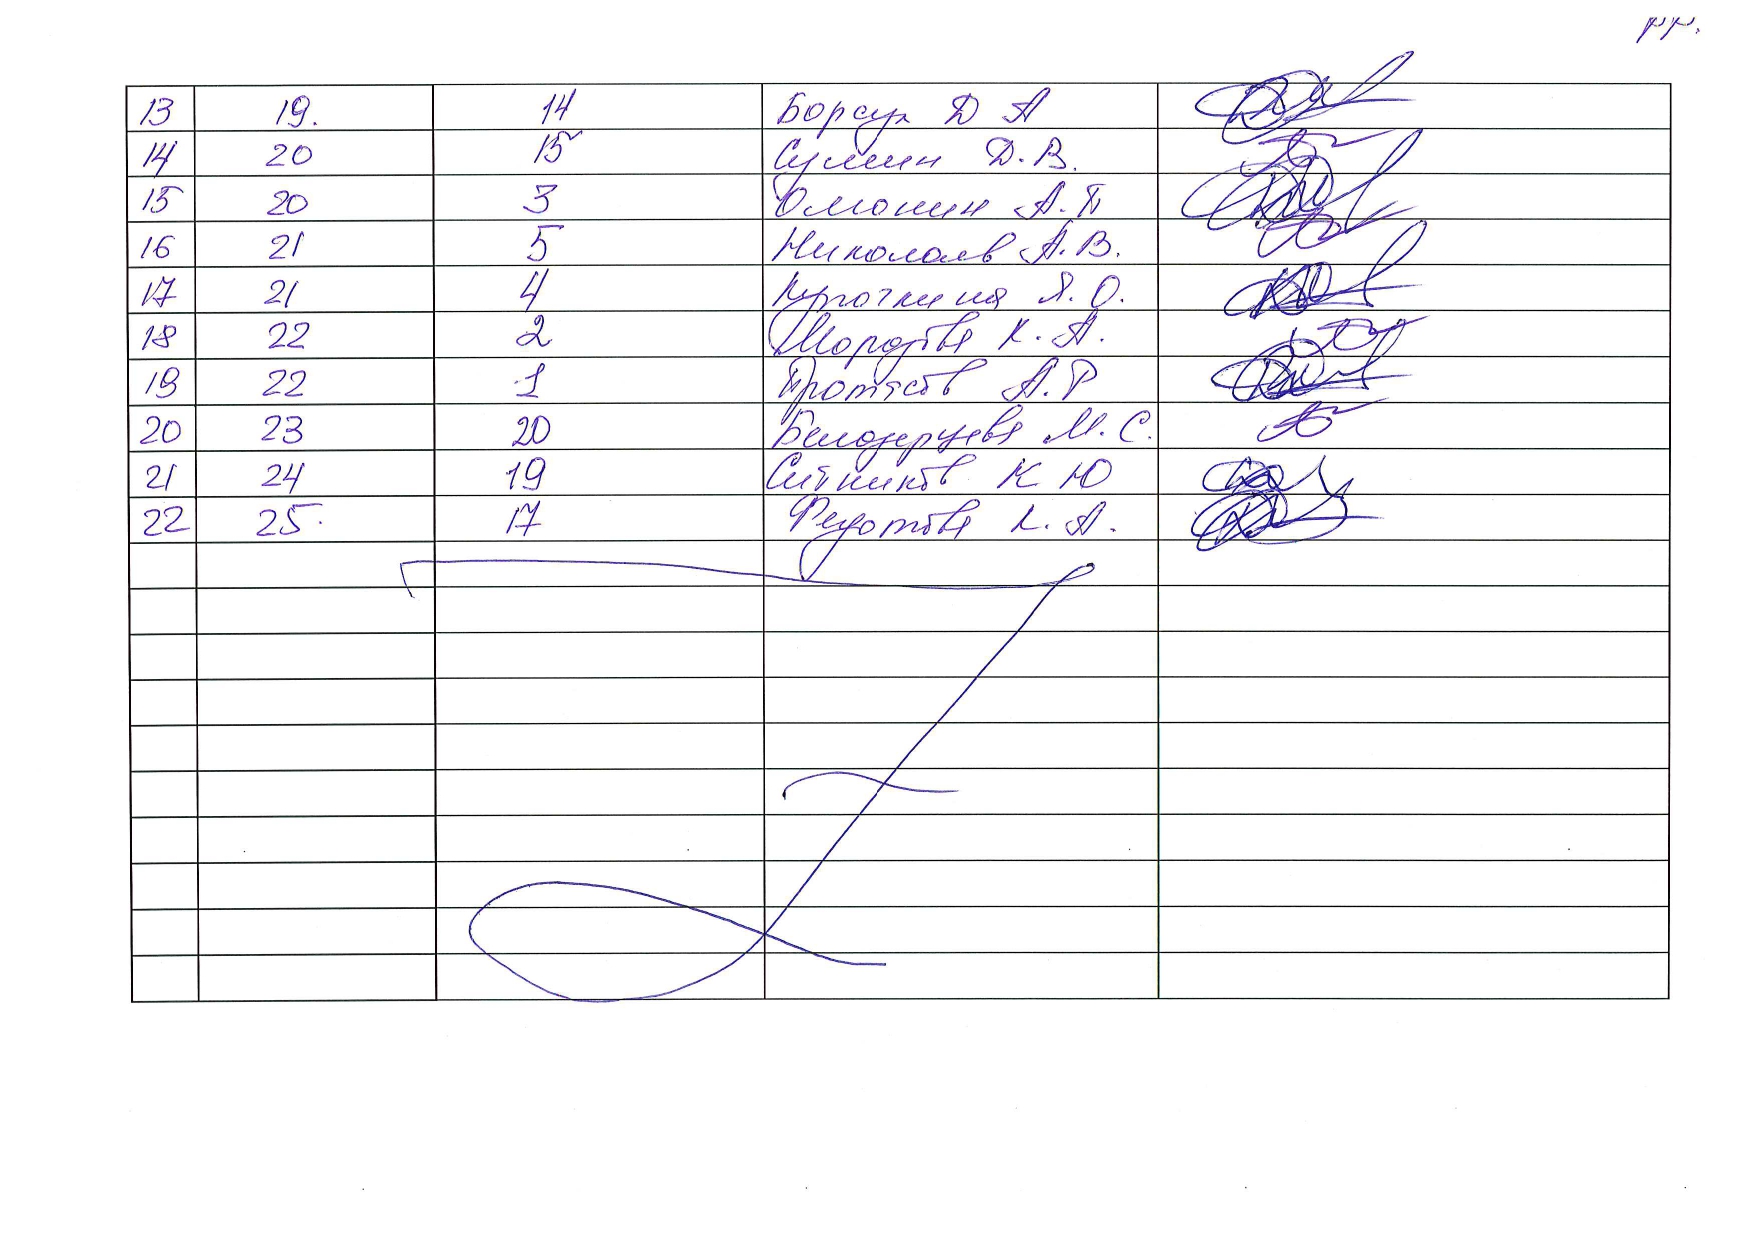 13 19. 14 Борсук Д А
14 20 15 Сумин Д.В.
15 20 3 Юмонин А.П
16 21 5 Николаев А.В.
17 21 4 Я.О.
18 22 2 К.А.
19 22 1 Протасов А.Р
20 23 20 Белозерцева М.С.
21 24 19 Ситников К Ю
22 25. 17 Федотова К.А.